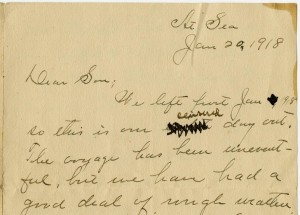 At Sea
Jan 20, 1918
Dear Son;
We left port Jan 1918
censored
so this is our day out.
The voyage has been unevent-
ful, but we have had a
good deal of rough weather